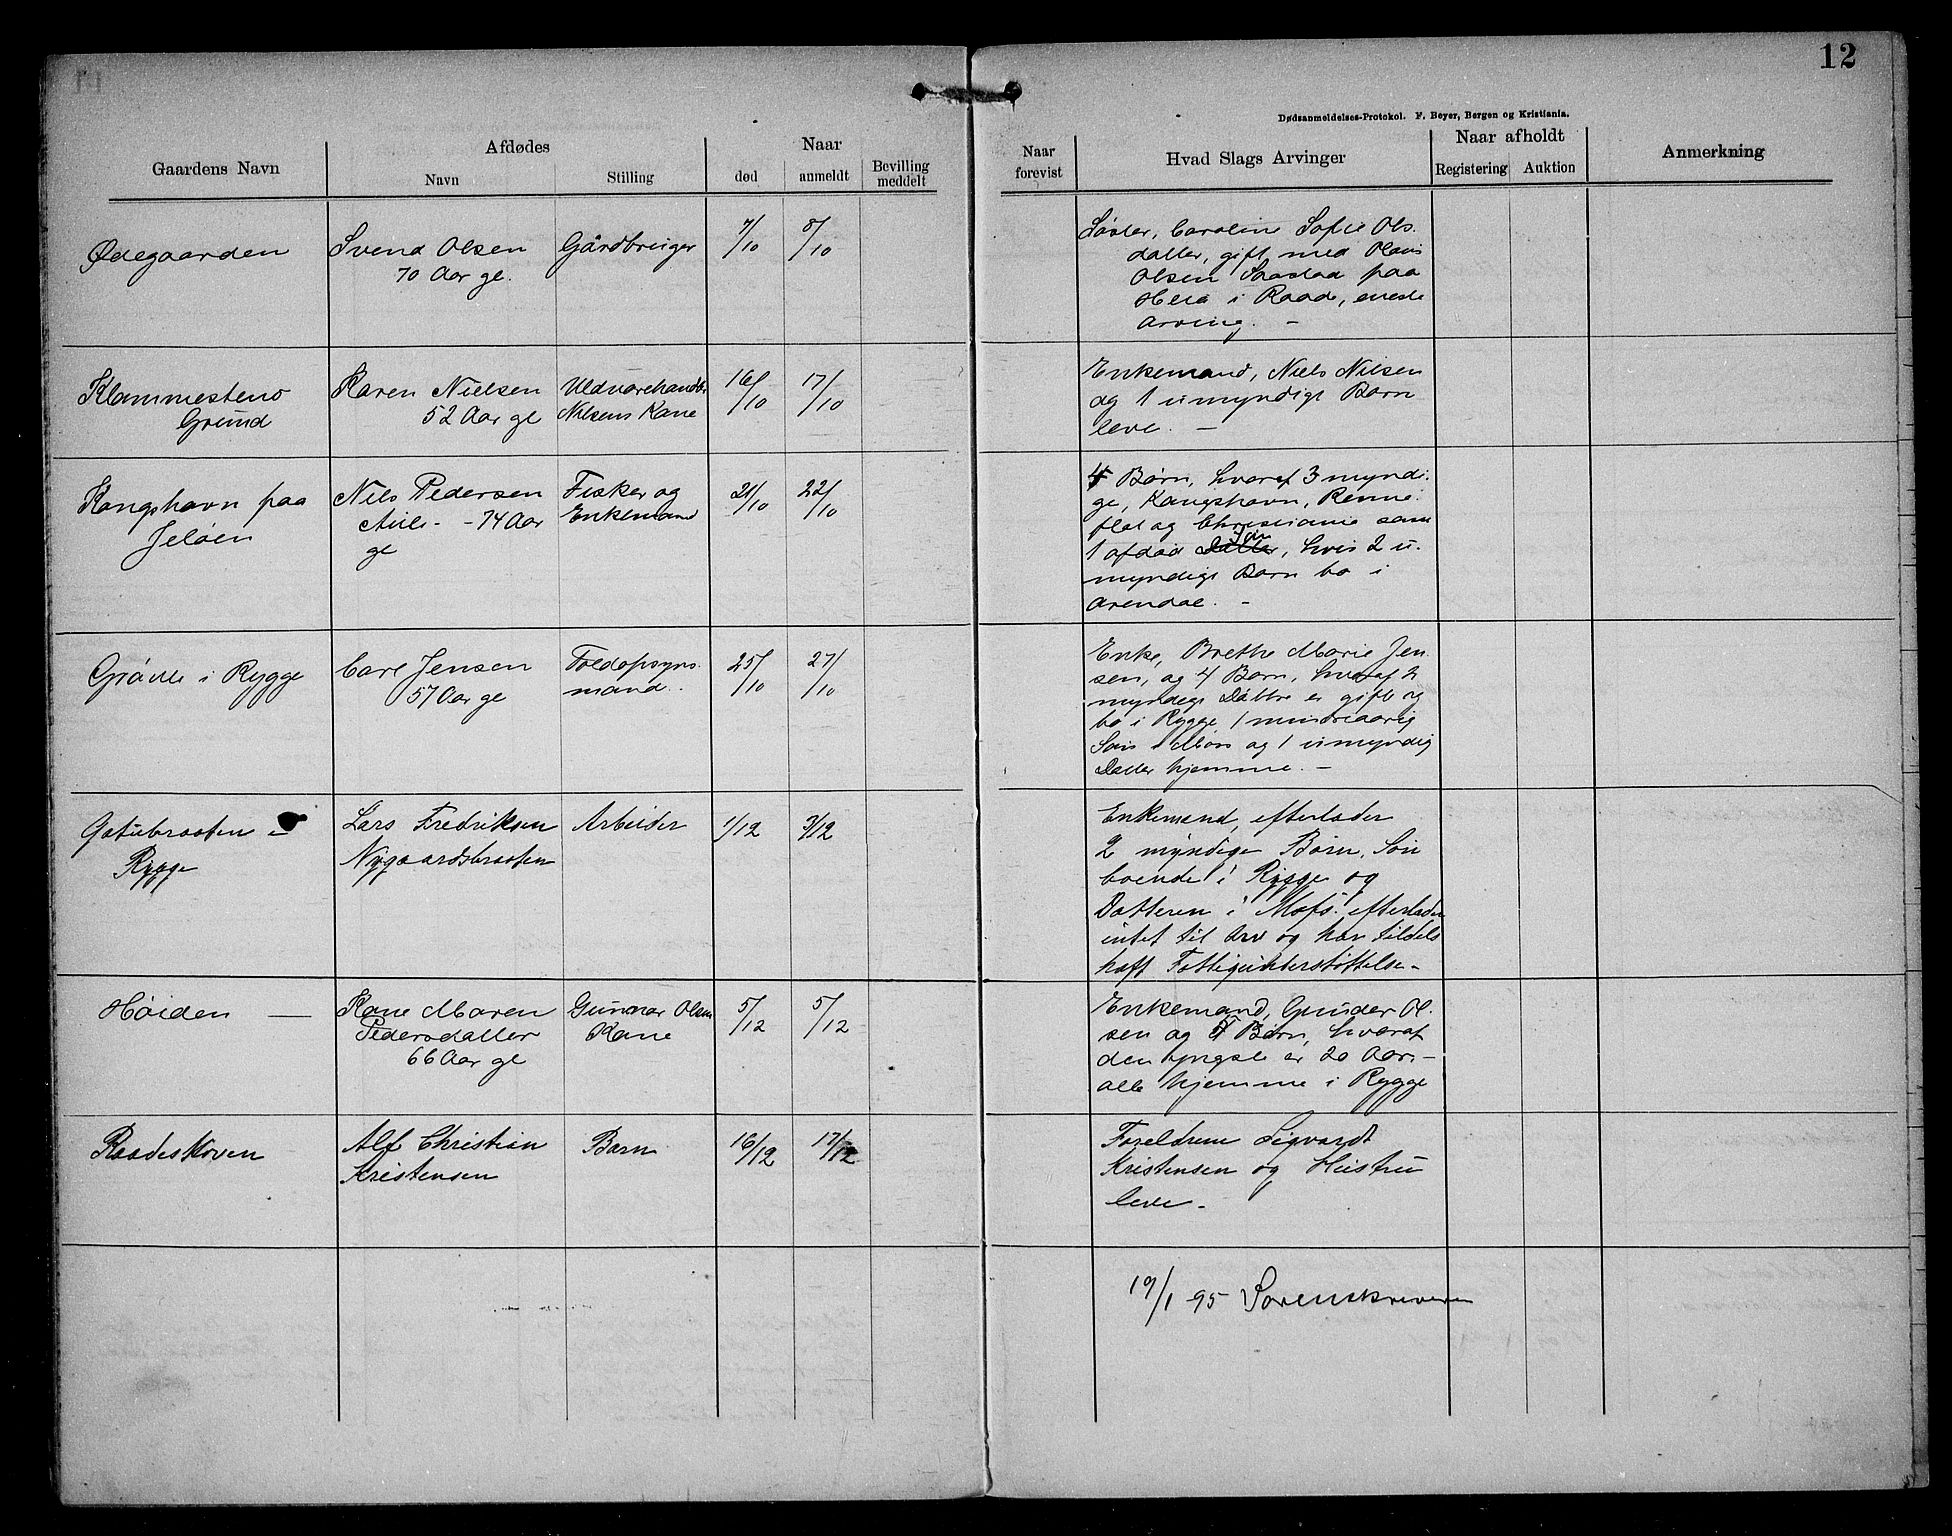 12
Dødsanmeldelses-Protokol. F. Beyer, Bergen og Kristiania.
Gaardens Navn
Afdødes
Navn
Stilling
Naar
død
anmeldt
Bevilling meddelt
Naar forevist
Hvad Slags Arvinger
Naar afholdt
Registering
Auktion
Anmerkning
Ødegaarden
Svend Olsen
70 Aar gl.
Gårdbruger
7/10
8/10
Søster, Carolin Sofie Ols-
datter, gift med
Olsen Saastad paa
i Raade, eneste
Arving. –
Klommestens
Grund
Karen Nielsen
52 Aar gl
Uldvarehandl.
Nilsens Kone
16/10
17/10
Enkemand, Niels Nilsen
og 1 umyndigt Barn
leve. –
Kongshavn paa
Jeløen
Nils Pedersen
- 74 Aar
gl
Fisker og
Enkemand
21/10
22/10
4 Børn, hvoraf 3 myndi-
ge, Kongshavn,
og Christiania samt
1 afdød Datter, hvis 2 u-
myndige Børn bo i
Arendal. –
i Rygge
Carl Jensen
57 Aar gl
Toldopsyns-
mand.
25/10
27/10
Enke, Brethe Marie Jen-
sen, og 4 Børn, hvoraf 2
myndige Døttre er gift og
bo i Rygge 1 mindreaarig
Søn i Moss og 1 umyndig
Datter hjemme. –
Gatubraaten i
Rygge
Lars Fredriksen
Nygaardsbraaten
Arbeider
1/12
3/12
Enkemand, efterlader
2 myndige Børn, Søn
boende i Rygge og
Datteren i Moss. efterlader
intet til Arv og har tildels
haft Fattigunderstøttelse –
Høiden —
Kone Maren
Pedersdatter
66 Aar gl
Gunnar Olsen
Kone
5/12
5/12
Enkemand, Gunder Ol-
sen og Børn, hvoraf
den yngste er 20 Aar –
alle hjemme i Rygge
Raadeskoven
Alf Christian
Kristensen
Barn
16/12
17/12
Foreldrene Sigvardt
Kristensen og Hustru
leve –
19/1 95 Sorenskriveren